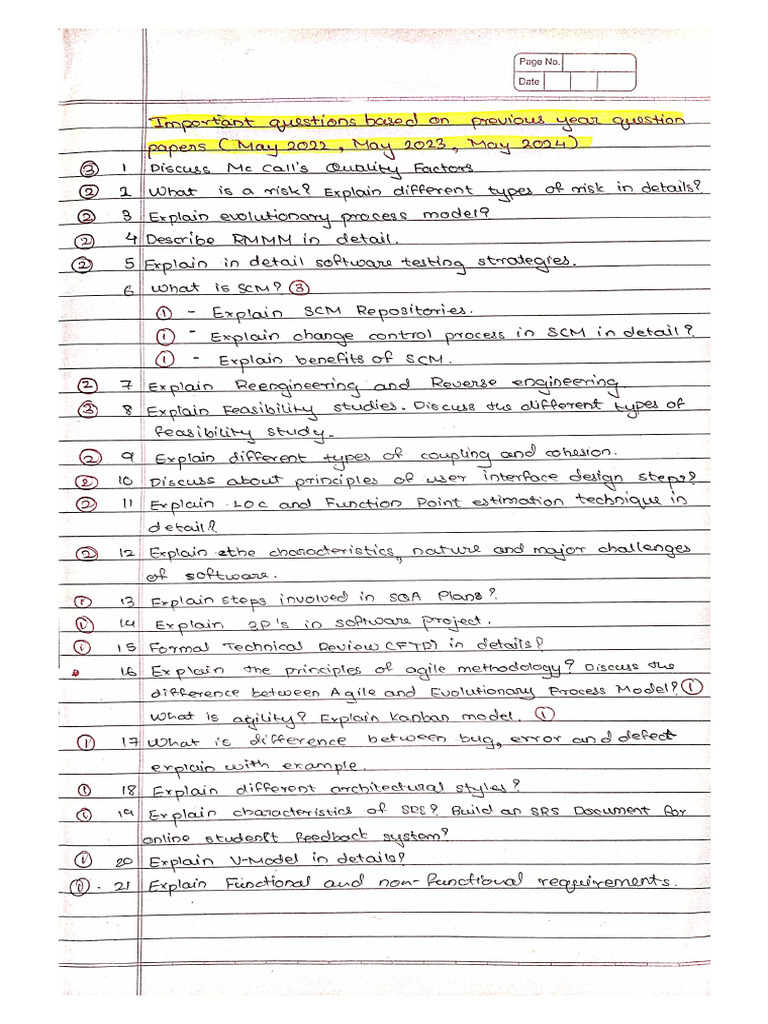 Page No.
Date
Important questions based on previous year question
papers (May 2022, May 2023, May 2024)
③ 1 Discuss Mc Call's Quality Factors
② 2 What is a risk? Explain different types of risk in details?
② 3 Explain evolutionary process model?
② 4 Describe RMMM in detail.
② 5 Explain in detail software testing strategies.
6 What is SCM? ③
① - Explain SCM Repositories.
① - Explain change control process in SCM in detail?
① - Explain benefits of SCM.
② 7 Explain Reengineering and Reverse engineering
③ 8 Explain Feasibility studies. Discuss the different types of
feasibility study.
② 9 Explain different types of coupling and cohesion.
② 10 Discuss about principles of user interface design steps?
② 11 Explain LOC and Function Point estimation technique in
detail?
② 12 Explain the characteristics, nature and major challenges
of software.
① 13 Explain steps involved in SQA Plans?
① 14 Explain 3P's in software project.
① 15 Formal Technical Review (FTR) in details?
16 Explain the principles of agile methodology? Discuss the
difference between Agile and Evolutionary Process Model? ①
What is agility? Explain Kanban model. ①
① 17 What is difference between bug, error and defect
explain with example.
① 18 Explain different architectural styles?
① 19 Explain characteristics of SRS? Build an SRS Document for
online student feedback system?
① 20 Explain V-Model in details?
① . 21 Explain Functional and non-functional requirements.